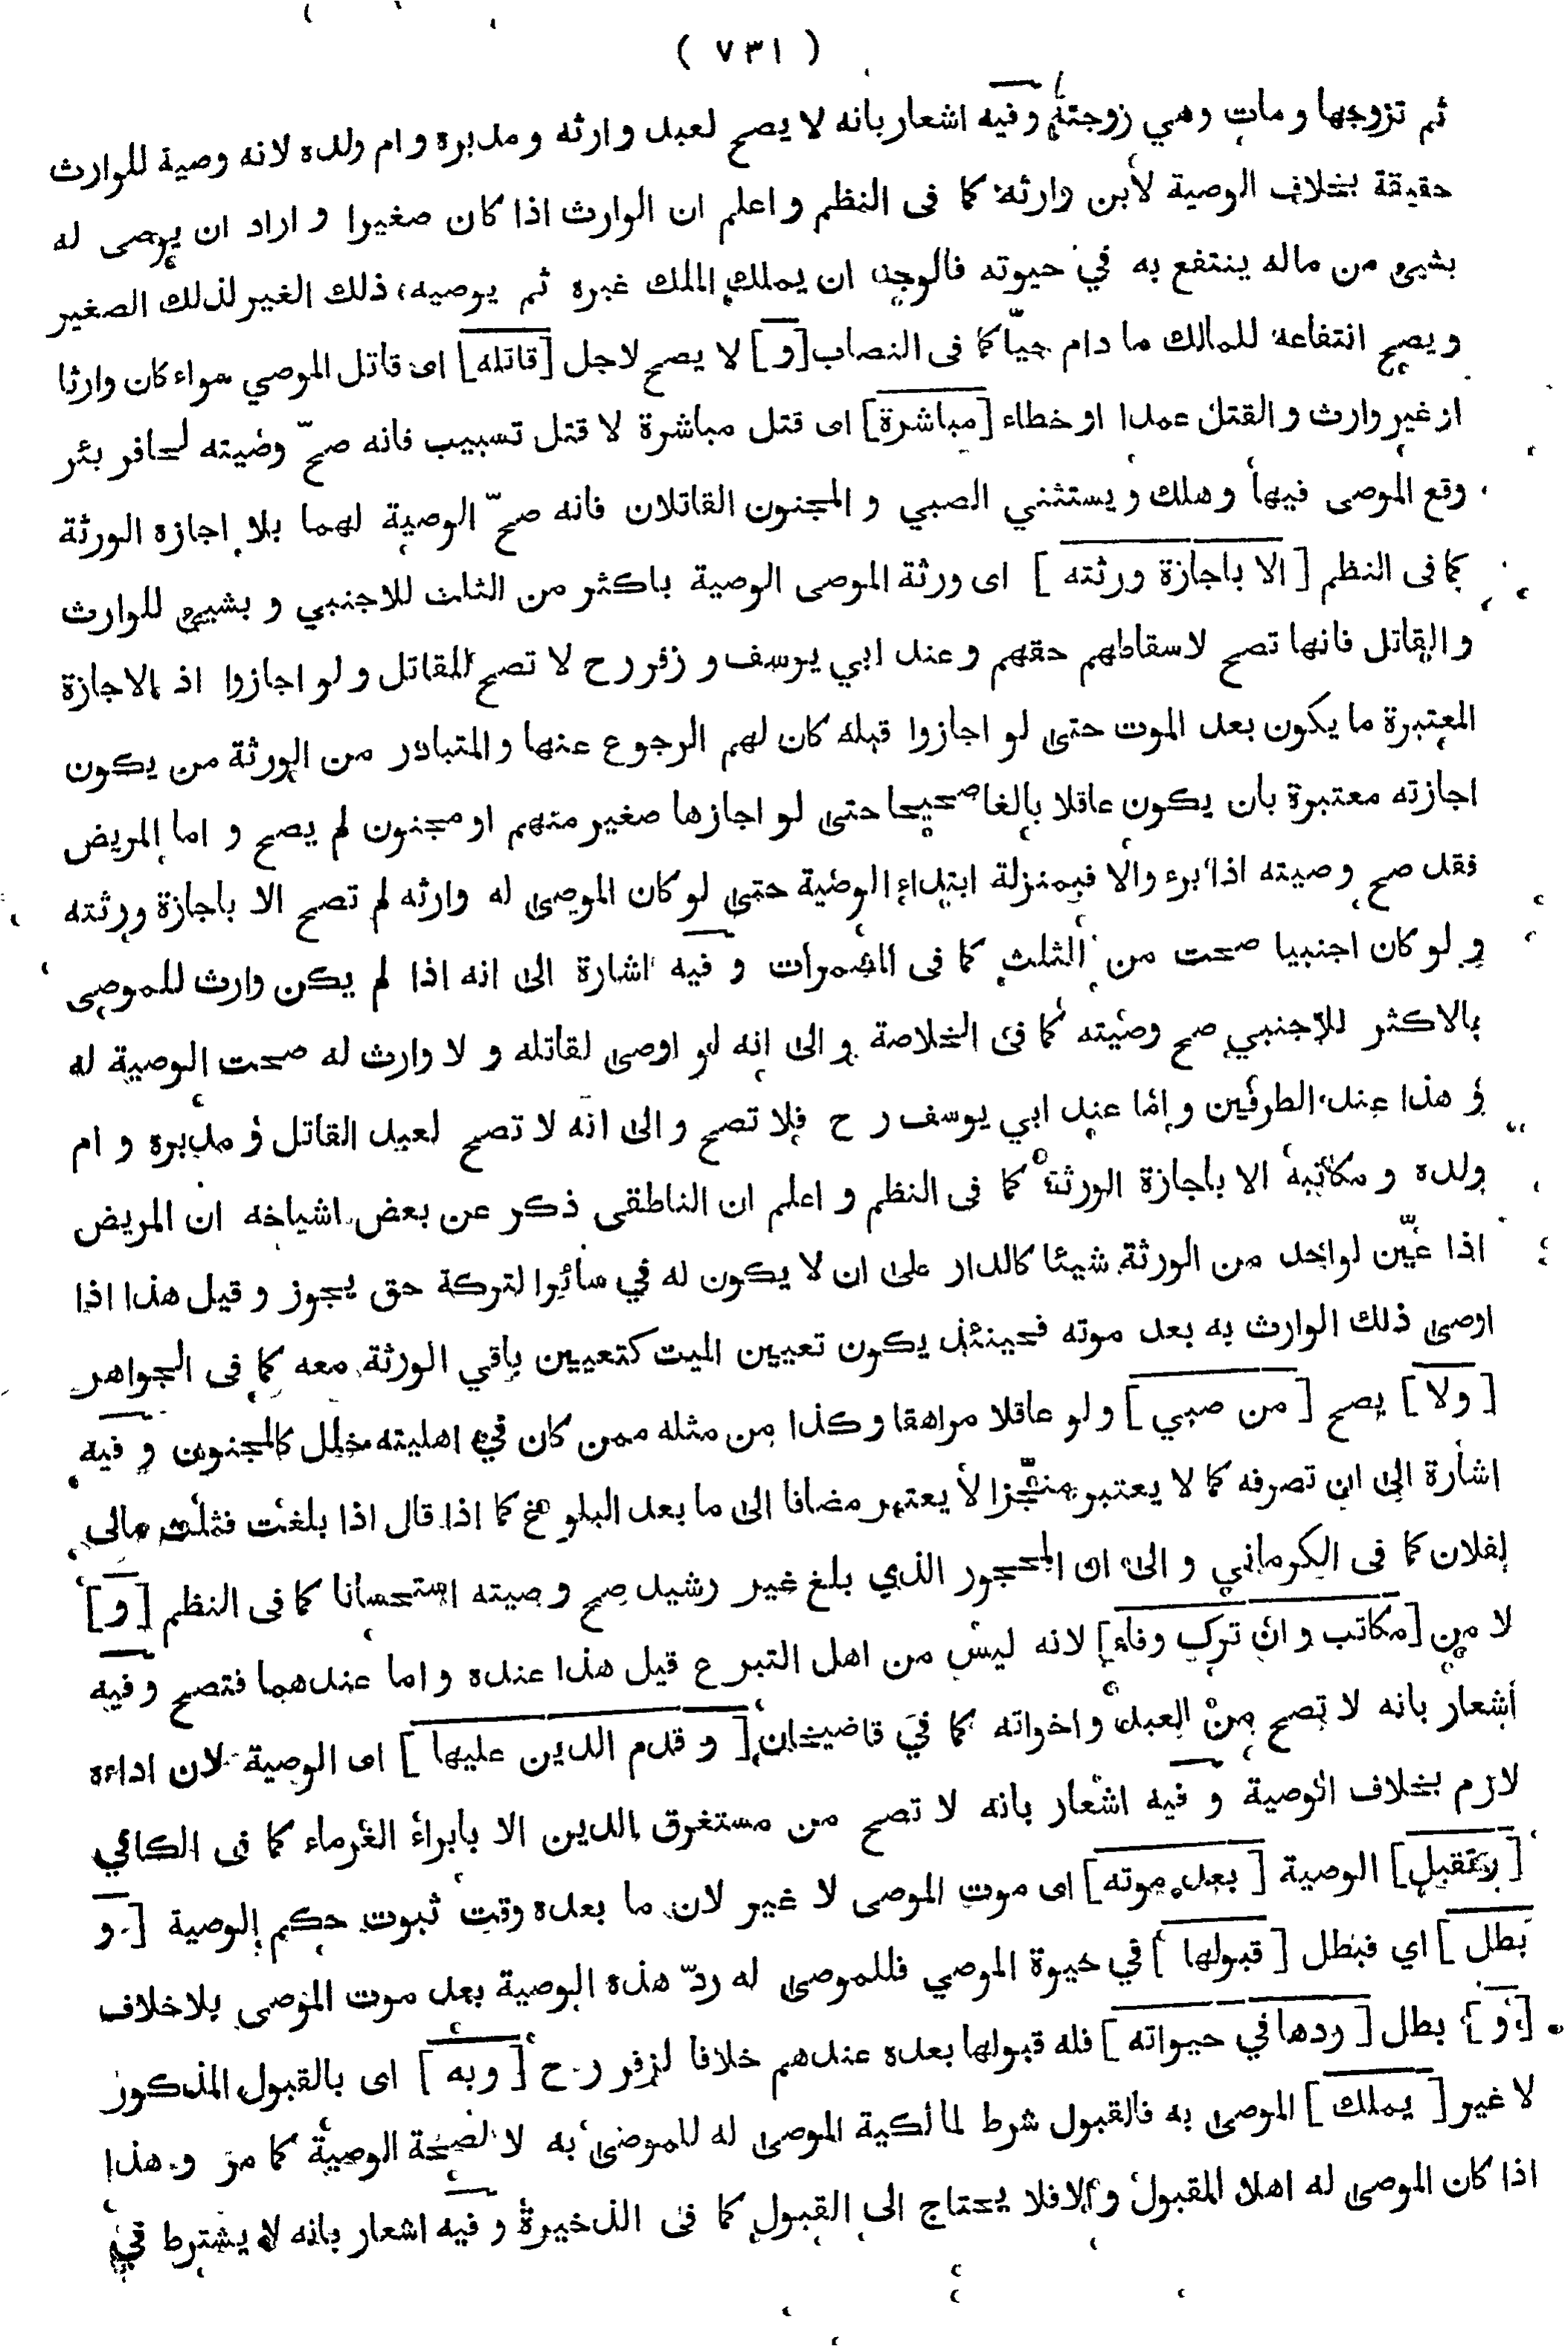 ( ٧٣١ )
ثم تزوجها و مات وهي زوجته وفيه اشعار بانه لا يصح لعبد وارثه و مدبره و ام ولده لانه وصية للوارث
حقيقة بخلاف الوصية لأبن وارثه كما فى النظم و اعلم ان الوارث اذا كان صغيرا و اراد ان يوصى له
بشيئ من ماله ينتفع به في حيوته فالوجه ان يملك الملك غيره ثم يوصيه ذلك الغير لذلك الصغير
و يصح انتفاعه للمالك ما دام حيّا كما فى النصاب [و] لا يصح لاجل [قاتله] اى قاتل الموصي سواء كان وارثا
او غير وارث و القتل عمدا او خطاء [مباشرة] اى قتل مباشرة لا قتل تسبيب فانه صحّ وصيته لحافر بئر
وقع الموصى فيها وهلك و يستثنى الصبي و المجنون القاتلان فانه صحّ الوصية لهما بلا اجازه الورثة
كما فى النظم [ الا باجازة ورثته ] اى ورثة الموصى الوصية باكثر من الثلث للاجنبي و بشيئ للوارث
و القاتل فانها تصح لاسقاطهم حقهم و عند ابي يوسف و زفر رح لا تصح للقاتل و لو اجازوا اذ الاجازة
المعتبرة ما يكون بعد الموت حتى لو اجازوا قبله كان لهم الرجوع عنها و المتبادر من الورثة من يكون
اجازته معتبرة بان يكون عاقلا بالغا صحيحا حتى لو اجازها صغير منهم او مجنون لم يصح و اما المريض
فقد صح وصيته اذا برء والا فبمنزلة ابتداء الوصية حتى لو كان الموصى له وارثه لم تصح الا باجازة ورثته
و لو كان اجنبيا صحت من الثلث كما فى المضمرات و فيه اشارة الى انه اذا لم يكن وارث للموصى
بالاكثر للاجنبي صح وصيته كما فى الخلاصة و الى انه لو اوصى لقاتله و لا وارث له صحت الوصية له
و هذا عند الطرفين و اما عند ابي يوسف ر ح فلا تصح و الى انه لا تصح لعبد القاتل و مدبره و ام
ولده و مكاتبه الا باجازة الورثة كما فى النظم و اعلم ان الناطقى ذكر عن بعض اشياخه ان المريض
اذا عيّن لواحد من الورثة شيئا كالدار على ان لا يكون له في سائر التركة حق يجوز و قيل هذا اذا
اوصى ذلك الوارث به بعد موته فحينئذ يكون تعيين الميت كتعيين باقي الورثة معه كما فى الجواهر
[ ولا ] يصح [ من صبي ] و لو عاقلا مراهقا وكذا من مثله ممن كان في اهليته خلل كالمجنون و فيه
اشارة الى ان تصرفه كما لا يعتبر منجّزا لا يعتبر مضافا الى ما بعد البلوغ كما اذا قال اذا بلغت فثلث مالى
لفلان كما فى الكرماني و الى ان المحجور الذي بلغ غير رشيد صح وصيته استحسانا كما فى النظم [ و ]
لا من [ مكاتب و ان ترك وفاء ] لانه ليس من اهل التبرع قيل هذا عنده و اما عندهما فتصح و فيه
أشعار بانه لا تصح من العبد و اخواته كما في قاضيخان [ و قدم الدين عليها ] اى الوصية لان اداءه
لازم بخلاف الوصية و فيه اشعار بانه لا تصح من مستغرق الدين الا بابراء الغرماء كما فى الكافي
[ وتقبل ] الوصية [ بعد موته ] اى موت الموصى لا غير لان ما بعده وقت ثبوت حكم الوصية [ و
بطل ] اي فبطل [ قبولها ] في حيوة الموصي فللموصى له ردّ هذه الوصية بعد موت الموصى بلا خلاف
[ و ] بطل [ ردها في حيواته ] فله قبولها بعده عندهم خلافا لزفر ر ح [ وبه ] اى بالقبول المذكور
لا غير [ يملك ] الموصى به فالقبول شرط لمالكية الموصى له للموصى به لا لصحة الوصية كما مر و هذا
اذا كان الموصى له اهلا للقبول و الا فلا يحتاج الى القبول كما فى الذخيرة و فيه اشعار بانه لا يشترط في